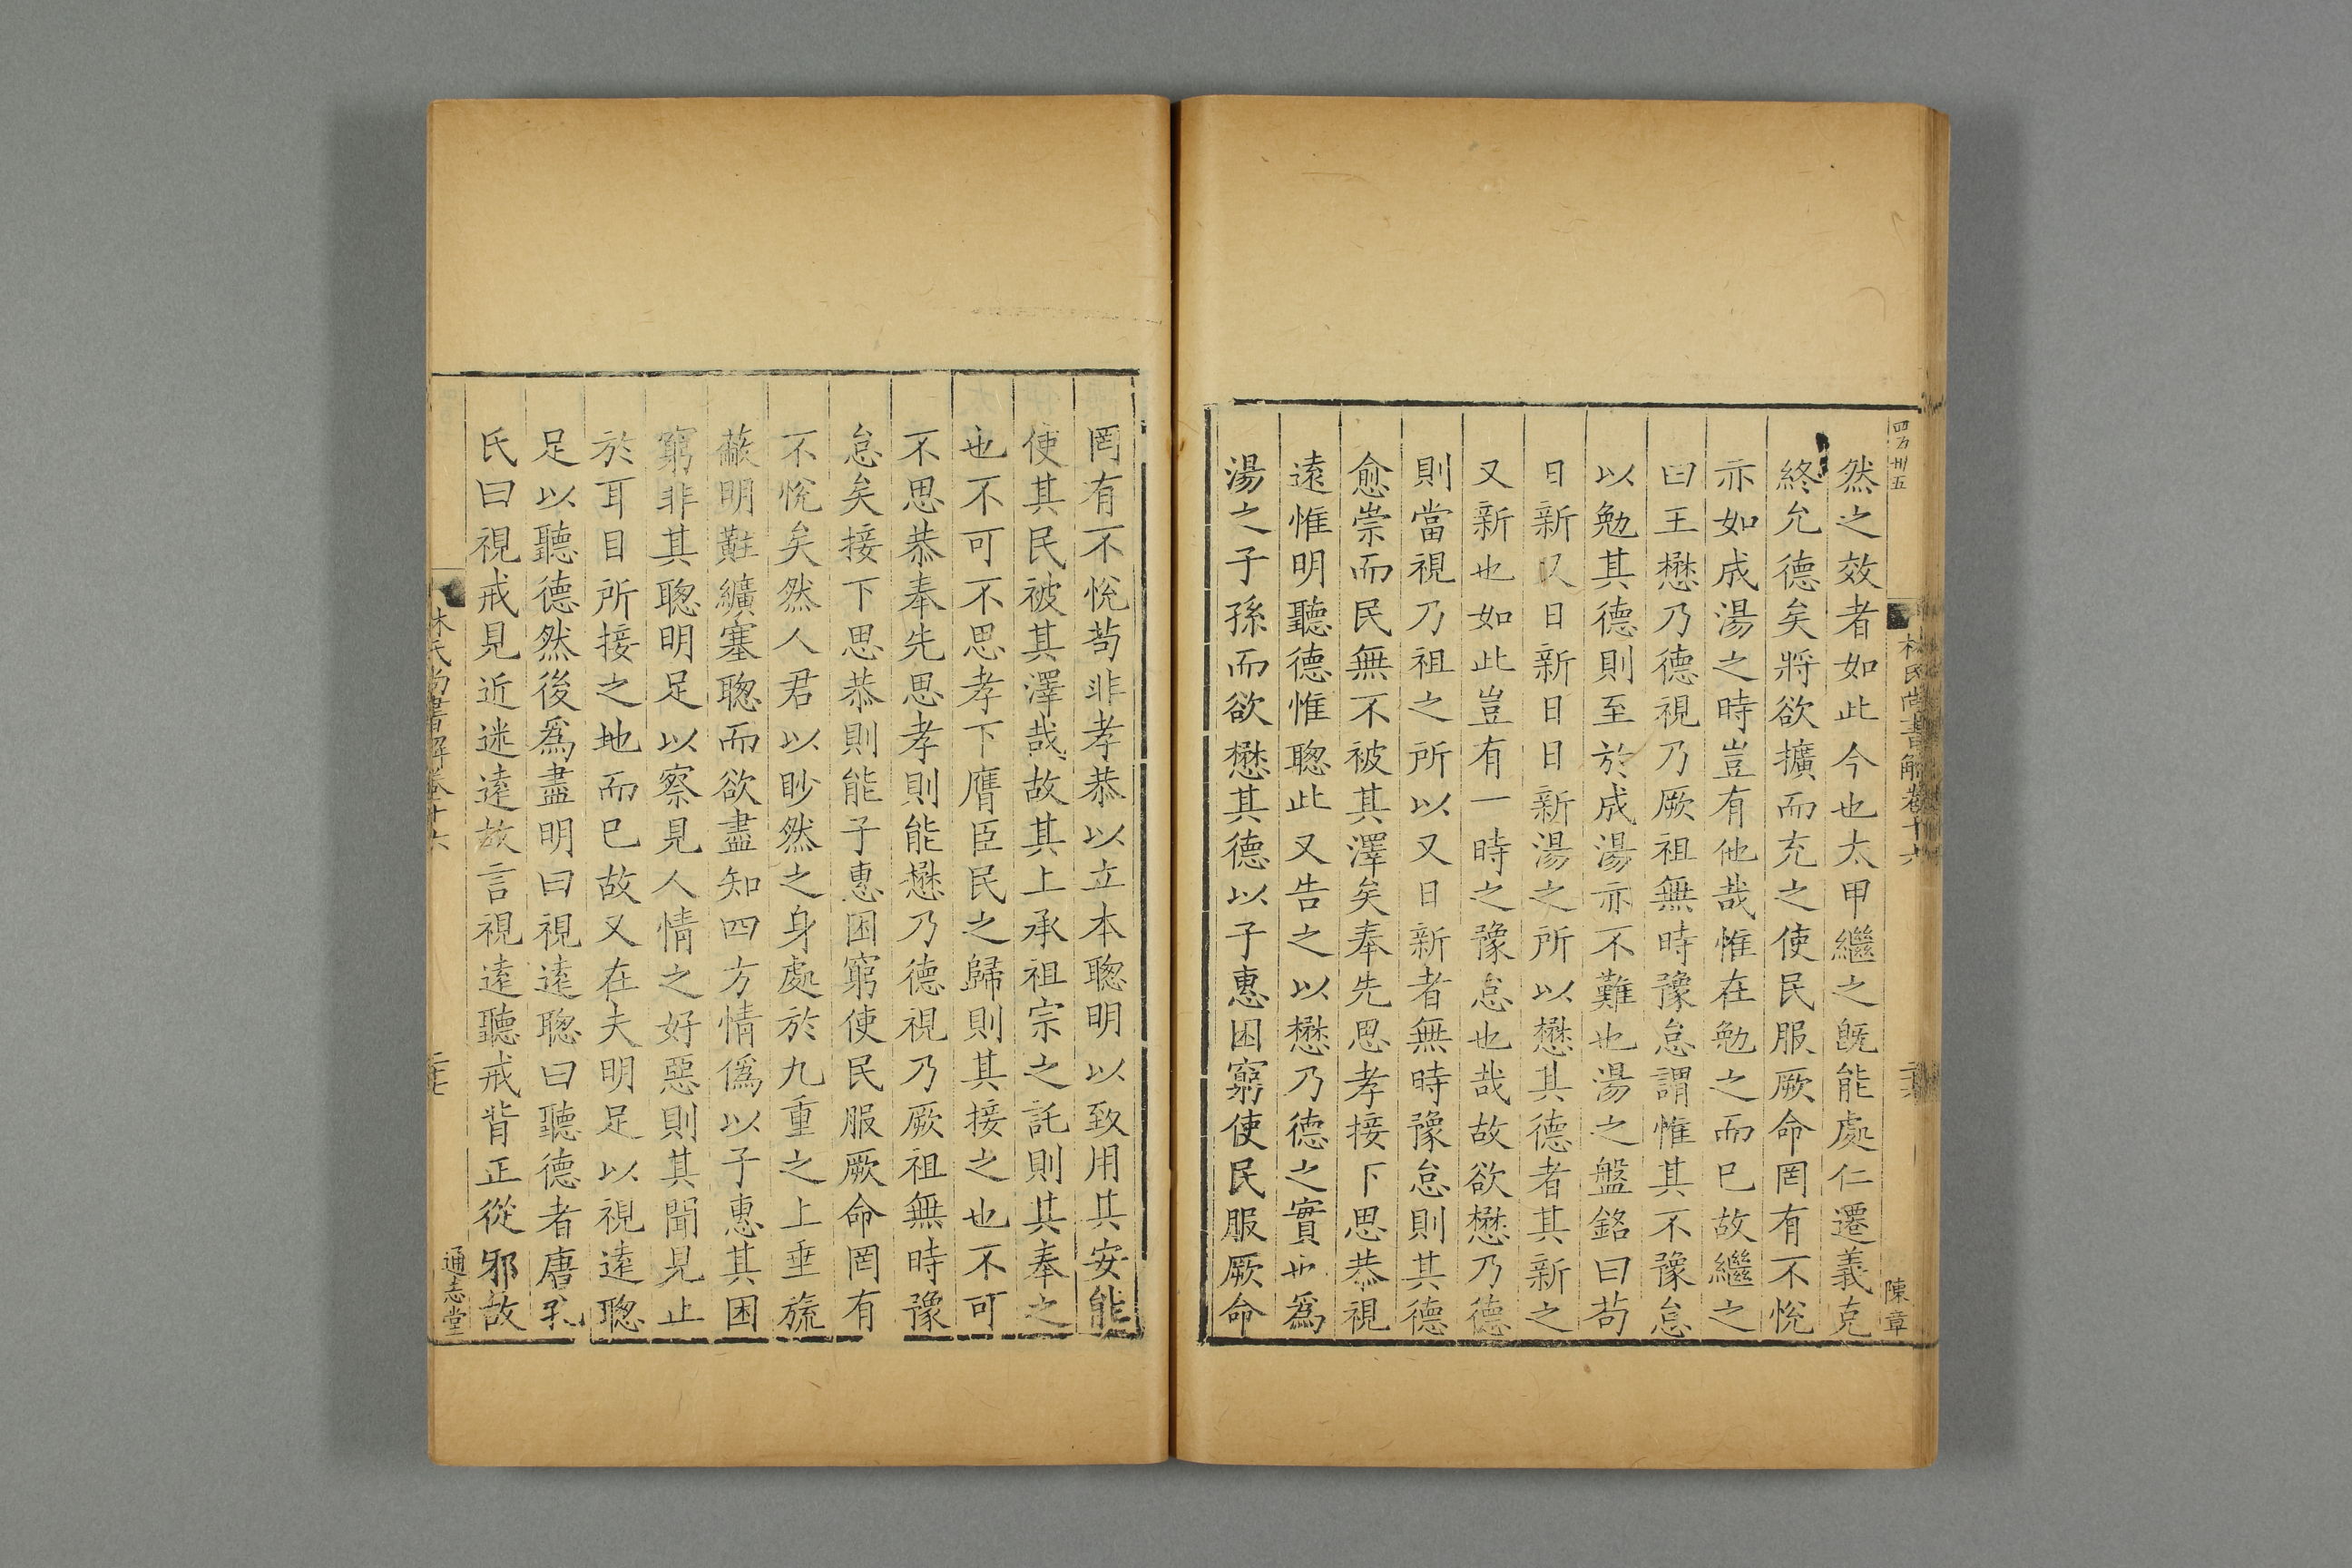 四百卅五
林氏尚書解卷十六
陳章
然之效者如此今也太甲繼之既能處仁遷義克
終允德矣將欲擴而充之使民服厥命罔有不悅
亦如成湯之時豈有他哉惟在勉之而已故繼之
曰王懋乃德視乃厥祖無時豫怠謂惟其不豫怠
以勉其德則至於成湯亦不難也湯之盤銘曰茍
日新又日新日日新湯之所以懋其德者其新之
又新也如此豈有一時之豫怠也哉故欲懋乃德
則當視乃祖之所以又日新者無時豫怠則其德
愈崇而民無不被其澤矣奉先思孝接下思恭視
遠惟明聽德惟聰此又告之以懋乃德之實也爲
湯之子孫而欲懋其德以子惠困窮使民服厥命
罔有不悅茍非孝恭以立本聰明以致用其安能
使其民被其澤哉故其上承祖宗之託則其奉之
也不可不思孝下膺臣民之歸則其接之也不可
不思恭奉先思孝則能懋乃德視乃厥祖無時豫
怠矣接下思恭則能子惠困窮使民服厥命罔有
不悅矣然人君以眇然之身處於九重之上垂旒
蔽明黈纊塞聰而欲盡知四方情僞以子惠其困
窮非其聰明足以察見人情之好惡則其聞見止
於耳目所接之地而已故又在夫明足以視遠聰
足以聽德然後爲盡明曰視遠聰曰聽德者唐孔
氏曰視戒見近迷遠故言視遠聽戒背正從邪故
林氏尚書解卷十六
二十七
通志堂